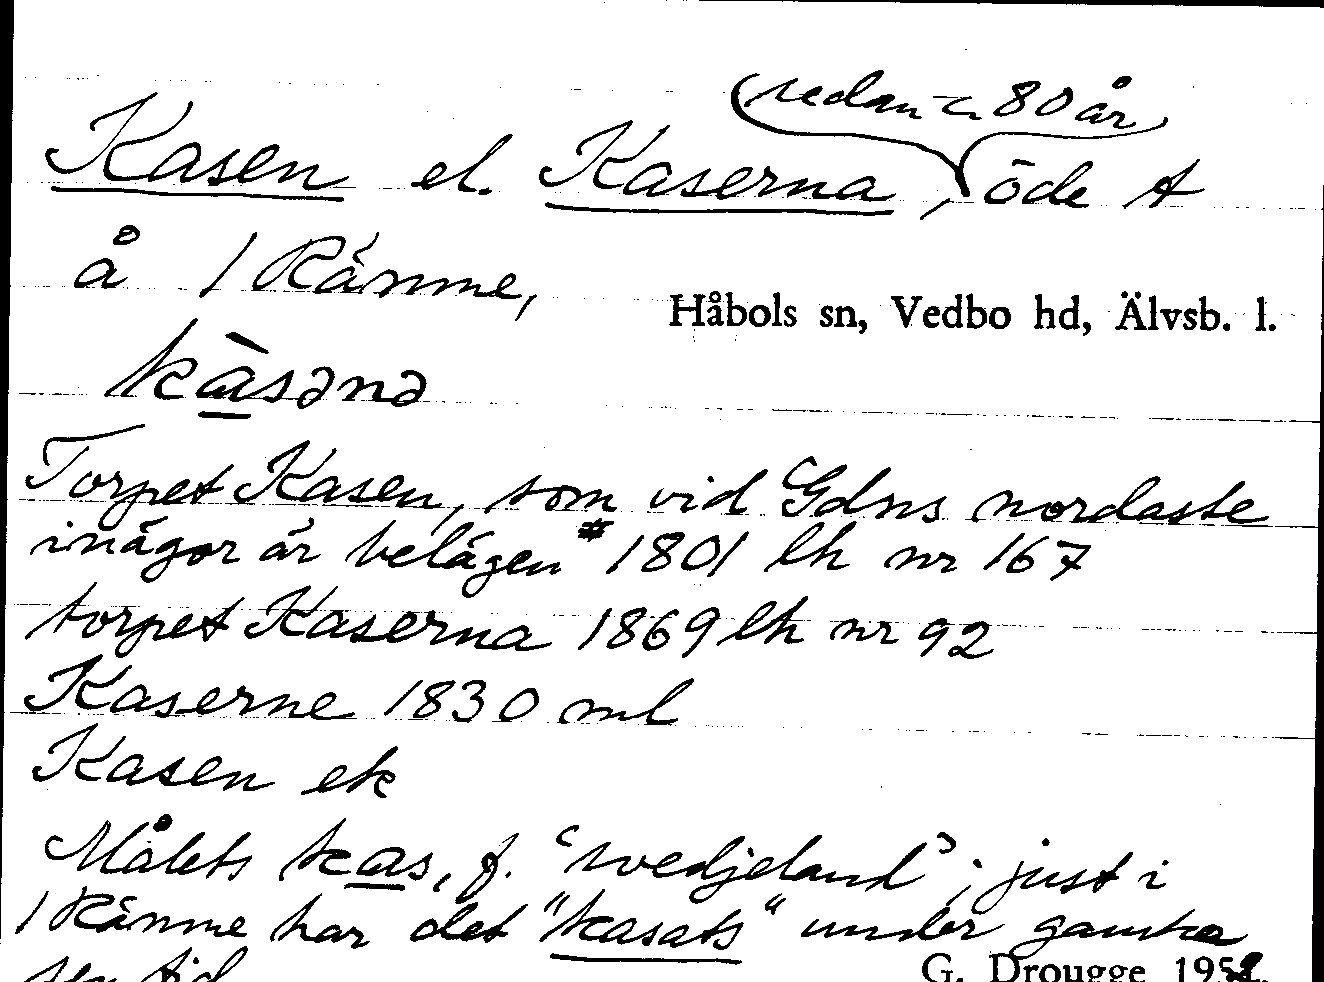 (sedan c. 80 år)
Kasen el. Kaserna, öde t
å 1 Ränne,
Håbols sn, Vedbo hd, Älvsb. l.
kàsənə
Torpet Kasen, som vid Gdns nordaste
inägor är belägen 1801 lh nr 167
torpet Kaserna 1869 lh nr 92
Kaserne 1830 ml
Kasen ek
Målets kas, f. "svedjeland"; just i
1 Ränne har det "kasats" under ganska
sen tid
G. Drougge 1952.